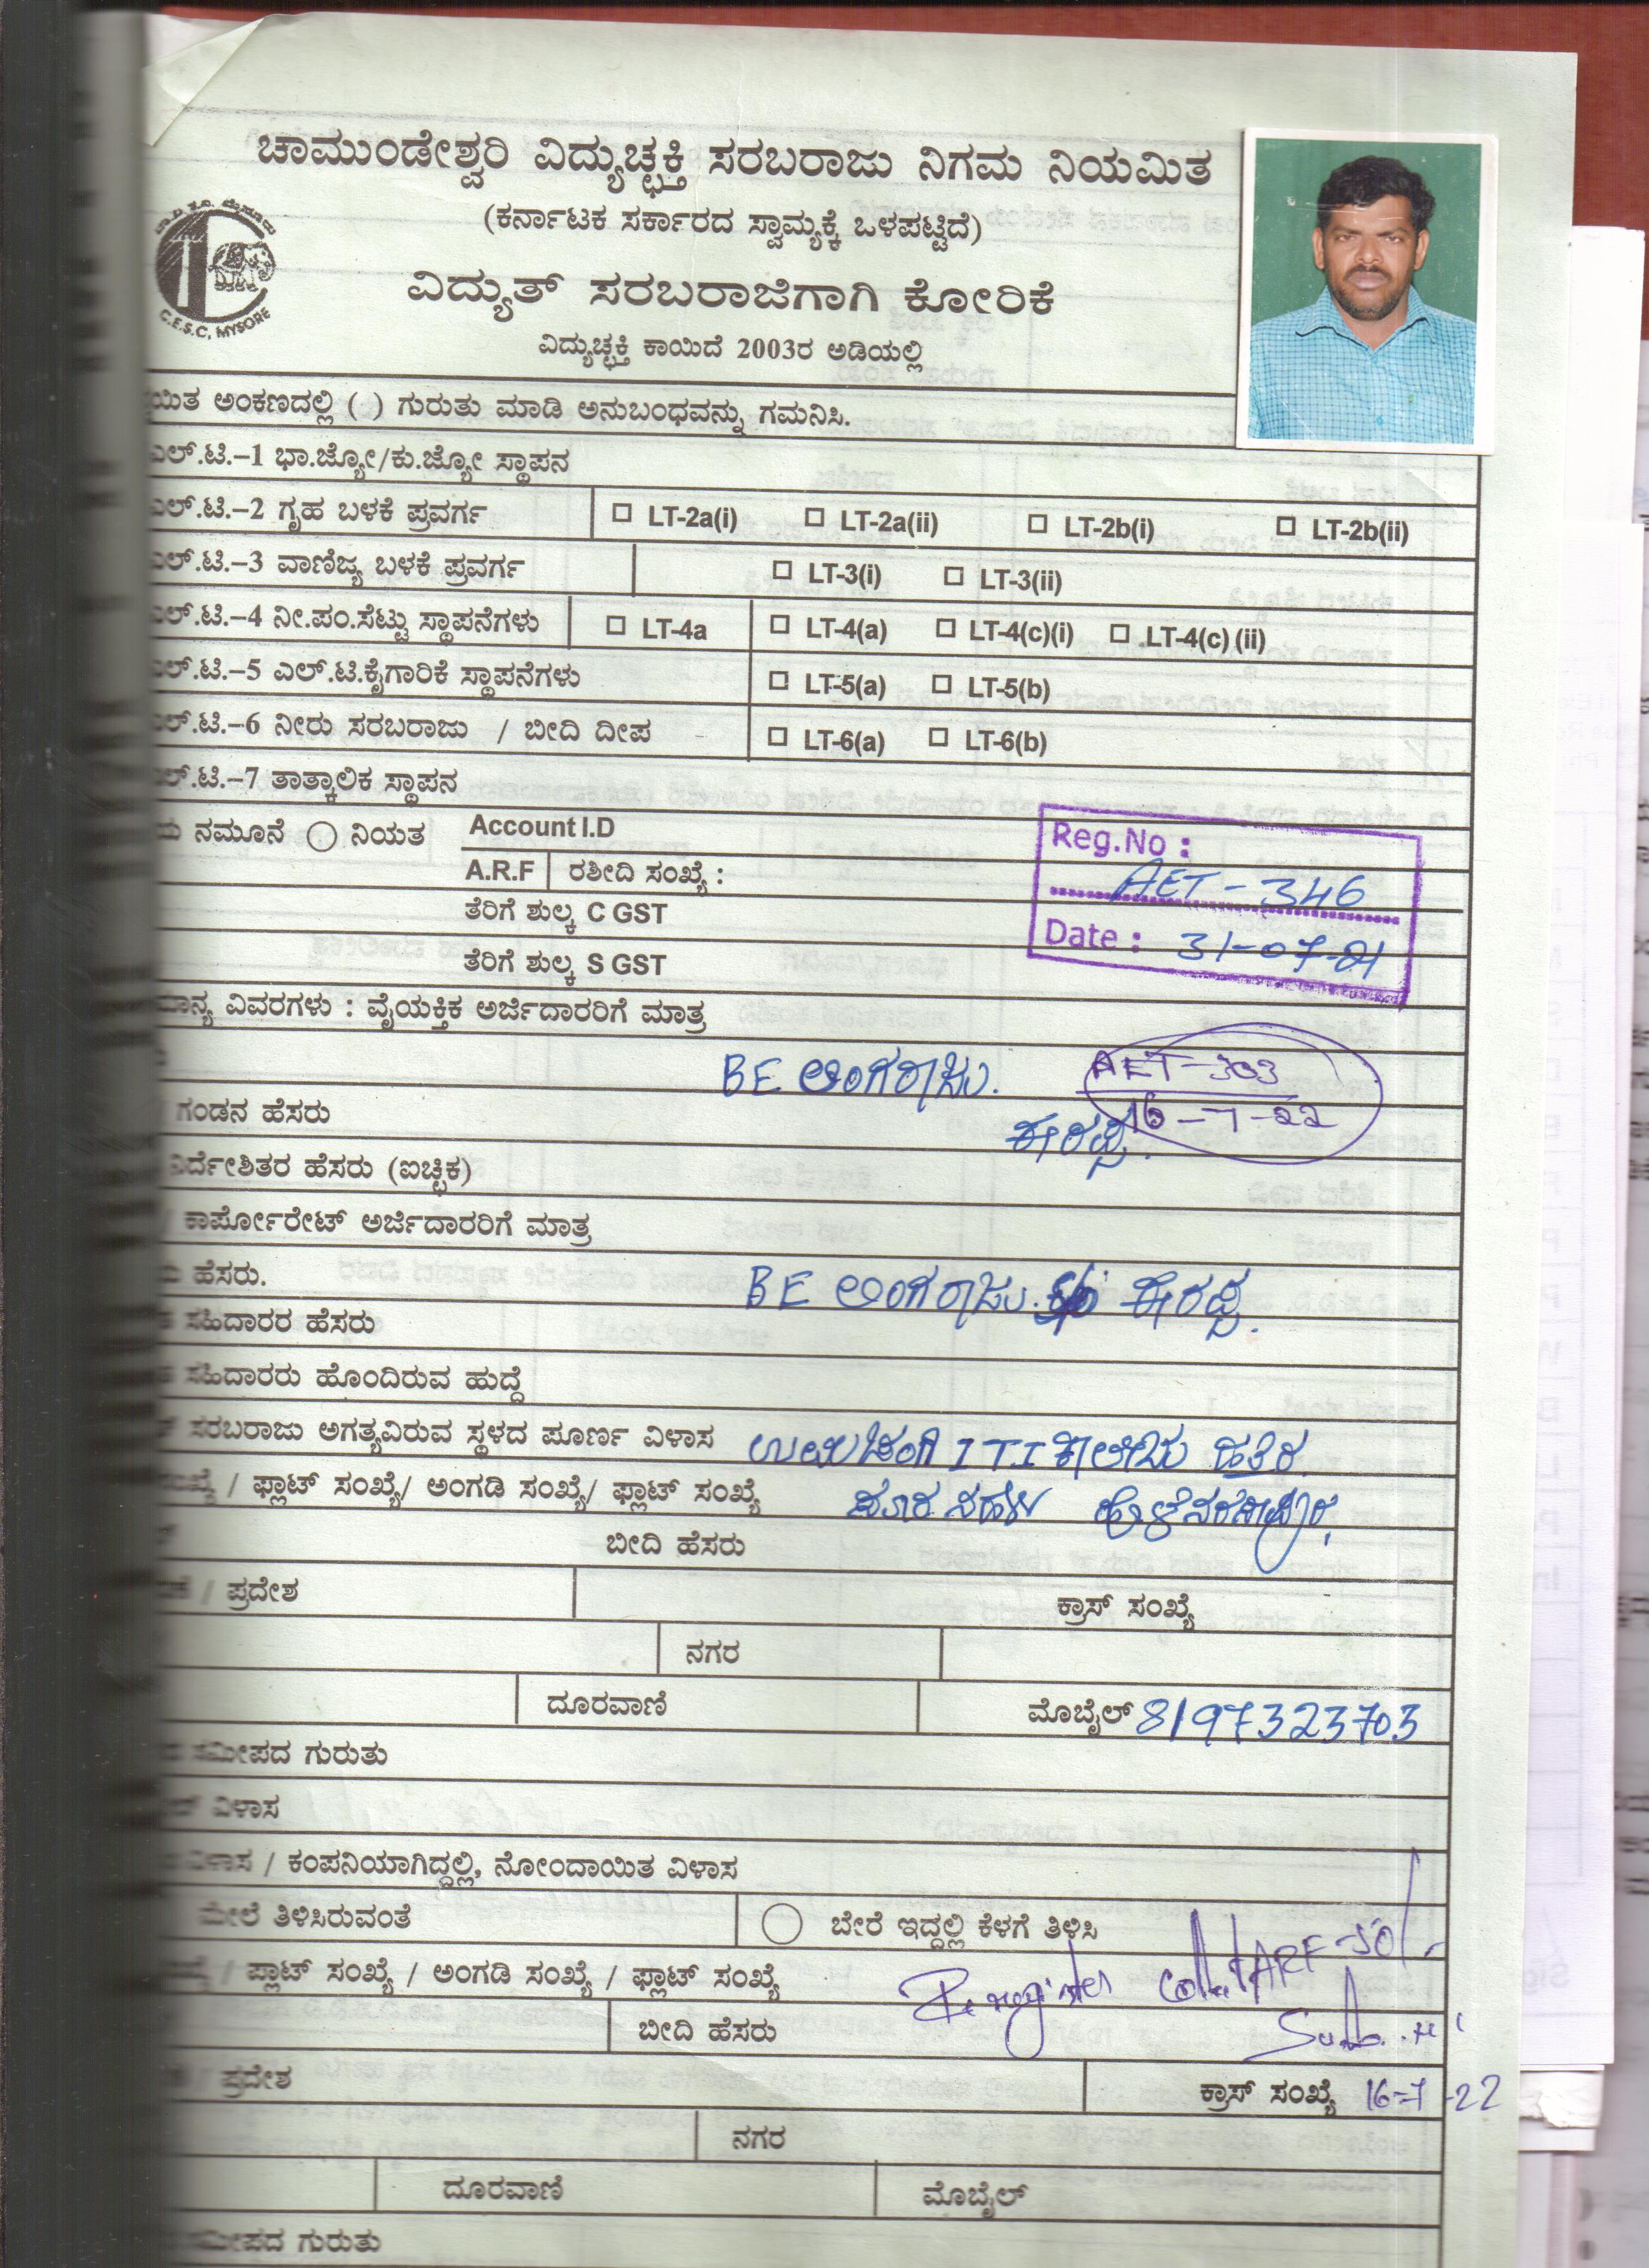 ಚಾಮುಂಡೇಶ್ವರಿ ವಿದ್ಯುಚ್ಛಕ್ತಿ ಸರಬರಾಜು ನಿಗಮ ನಿಯಮಿತ
(ಕರ್ನಾಟಕ ಸರ್ಕಾರದ ಸ್ವಾಮ್ಯಕ್ಕೆ ಒಳಪಟ್ಟಿದೆ)
C.E.S.C, MYSORE
ವಿದ್ಯುತ್ ಸರಬರಾಜಿಗಾಗಿ ಕೋರಿಕೆ
ವಿದ್ಯುಚ್ಛಕ್ತಿ ಕಾಯಿದೆ 2003ರ ಅಡಿಯಲ್ಲಿ
ಅಂಕಣದಲ್ಲಿ ( ) ಗುರುತು ಮಾಡಿ ಅನುಬಂಧವನ್ನು ಗಮನಿಸಿ.
ಎಲ್.ಟಿ.–1 ಭಾ.ಜ್ಯೋ/ಕು.ಜ್ಯೋ ಸ್ಥಾಪನ
ಎಲ್.ಟಿ.–2 ಗೃಹ ಬಳಕೆ ಪ್ರವರ್ಗ LT-2a(i) LT-2a(ii) LT-2b(i) LT-2b(ii)
ಎಲ್.ಟಿ.–3 ವಾಣಿಜ್ಯ ಬಳಕೆ ಪ್ರವರ್ಗ LT-3(i) LT-3(ii)
ಎಲ್.ಟಿ.–4 ನೀ.ಪಂ.ಸೆಟ್ಟು ಸ್ಥಾಪನೆಗಳು LT-4a LT-4(a) LT-4(c)(i) LT-4(c) (ii)
ಎಲ್.ಟಿ.–5 ಎಲ್.ಟಿ.ಕೈಗಾರಿಕೆ ಸ್ಥಾಪನೆಗಳು LT-5(a) LT-5(b)
ಎಲ್.ಟಿ.–6 ನೀರು ಸರಬರಾಜು / ಬೀದಿ ದೀಪ LT-6(a) LT-6(b)
ಎಲ್.ಟಿ.–7 ತಾತ್ಕಾಲಿಕ ಸ್ಥಾಪನ
ನಮೂನೆ ನಿಯತ Account I.D
Reg.No :
A.R.F ರಶೀದಿ ಸಂಖ್ಯೆ :
AET - 346
ತೆರಿಗೆ ಶುಲ್ಕ C GST
Date : 31-07-21
ತೆರಿಗೆ ಶುಲ್ಕ S GST
ವಿವರಗಳು : ವೈಯಕ್ತಿಕ ಅರ್ಜಿದಾರರಿಗೆ ಮಾತ್ರ
BE ಲಿಂಗರಾಜು. AET-303
16-7-22
ಗಂಡನ ಹೆಸರು ಈರಪ್ಪ.
ನಿರ್ದೇಶಿತರ ಹೆಸರು (ಐಚ್ಛಿಕ)
/ ಕಾರ್ಪೋರೇಟ್ ಅರ್ಜಿದಾರರಿಗೆ ಮಾತ್ರ
ಹೆಸರು. BE ಲಿಂಗರಾಜು. ಈರಪ್ಪ.
ಸಹಿದಾರರ ಹೆಸರು
ಸಹಿದಾರರು ಹೊಂದಿರುವ ಹುದ್ದೆ
ಸರಬರಾಜು ಅಗತ್ಯವಿರುವ ಸ್ಥಳದ ಪೂರ್ಣ ವಿಳಾಸ ITI ಕಾಲೇಜು ಹತ್ತಿರ
/ ಫ್ಲಾಟ್ ಸಂಖ್ಯೆ/ ಅಂಗಡಿ ಸಂಖ್ಯೆ/ ಫ್ಲಾಟ್ ಸಂಖ್ಯೆ ಹೊಳೆನರಸೀಪುರ,
ಬೀದಿ ಹೆಸರು
/ ಪ್ರದೇಶ ಕ್ರಾಸ್ ಸಂಖ್ಯೆ
ನಗರ
ದೂರವಾಣಿ ಮೊಬೈಲ್ 8197323703
ಸಮೀಪದ ಗುರುತು
ವಿಳಾಸ
ವಿಳಾಸ / ಕಂಪನಿಯಾಗಿದ್ದಲ್ಲಿ, ನೋಂದಾಯಿತ ವಿಳಾಸ
ಮೇಲೆ ತಿಳಿಸಿರುವಂತೆ ಬೇರೆ ಇದ್ದಲ್ಲಿ ಕೆಳಗೆ ತಿಳಿಸಿ
/ ಪ್ಲಾಟ್ ಸಂಖ್ಯೆ / ಅಂಗಡಿ ಸಂಖ್ಯೆ / ಫ್ಲಾಟ್ ಸಂಖ್ಯೆ Reregister ARF
ಬೀದಿ ಹೆಸರು
/ ಪ್ರದೇಶ ಕ್ರಾಸ್ ಸಂಖ್ಯೆ 16-7-22
ನಗರ
ದೂರವಾಣಿ ಮೊಬೈಲ್
ಸಮೀಪದ ಗುರುತು